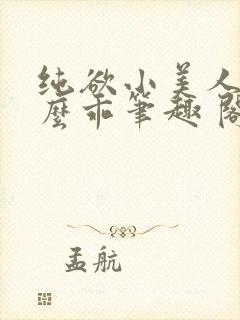 纯欲小美人
麽乖筆趣阁
孟航